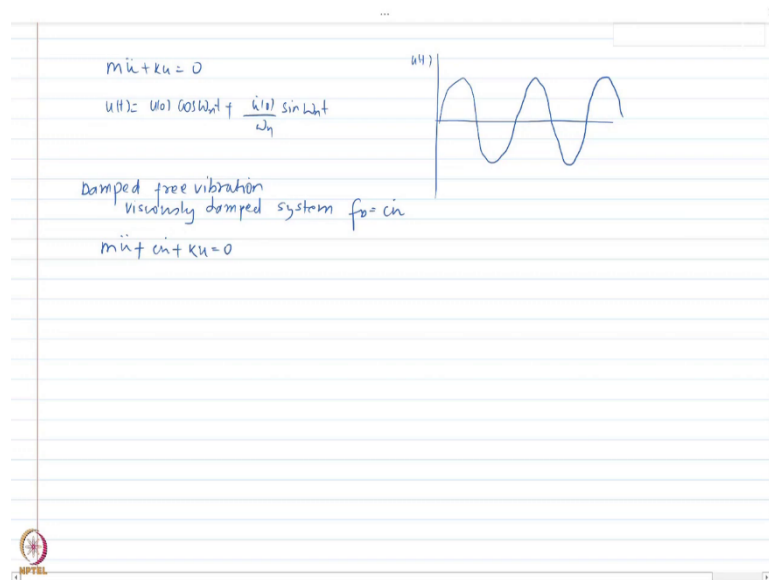 mü + ku = 0
u(t)
u(t) = u(0) cos ωnt + u̇(0)/ωn sin ωnt
Damped free vibration
viscously damped system fD = cu̇
mü + cu̇ + ku = 0
NPTEL